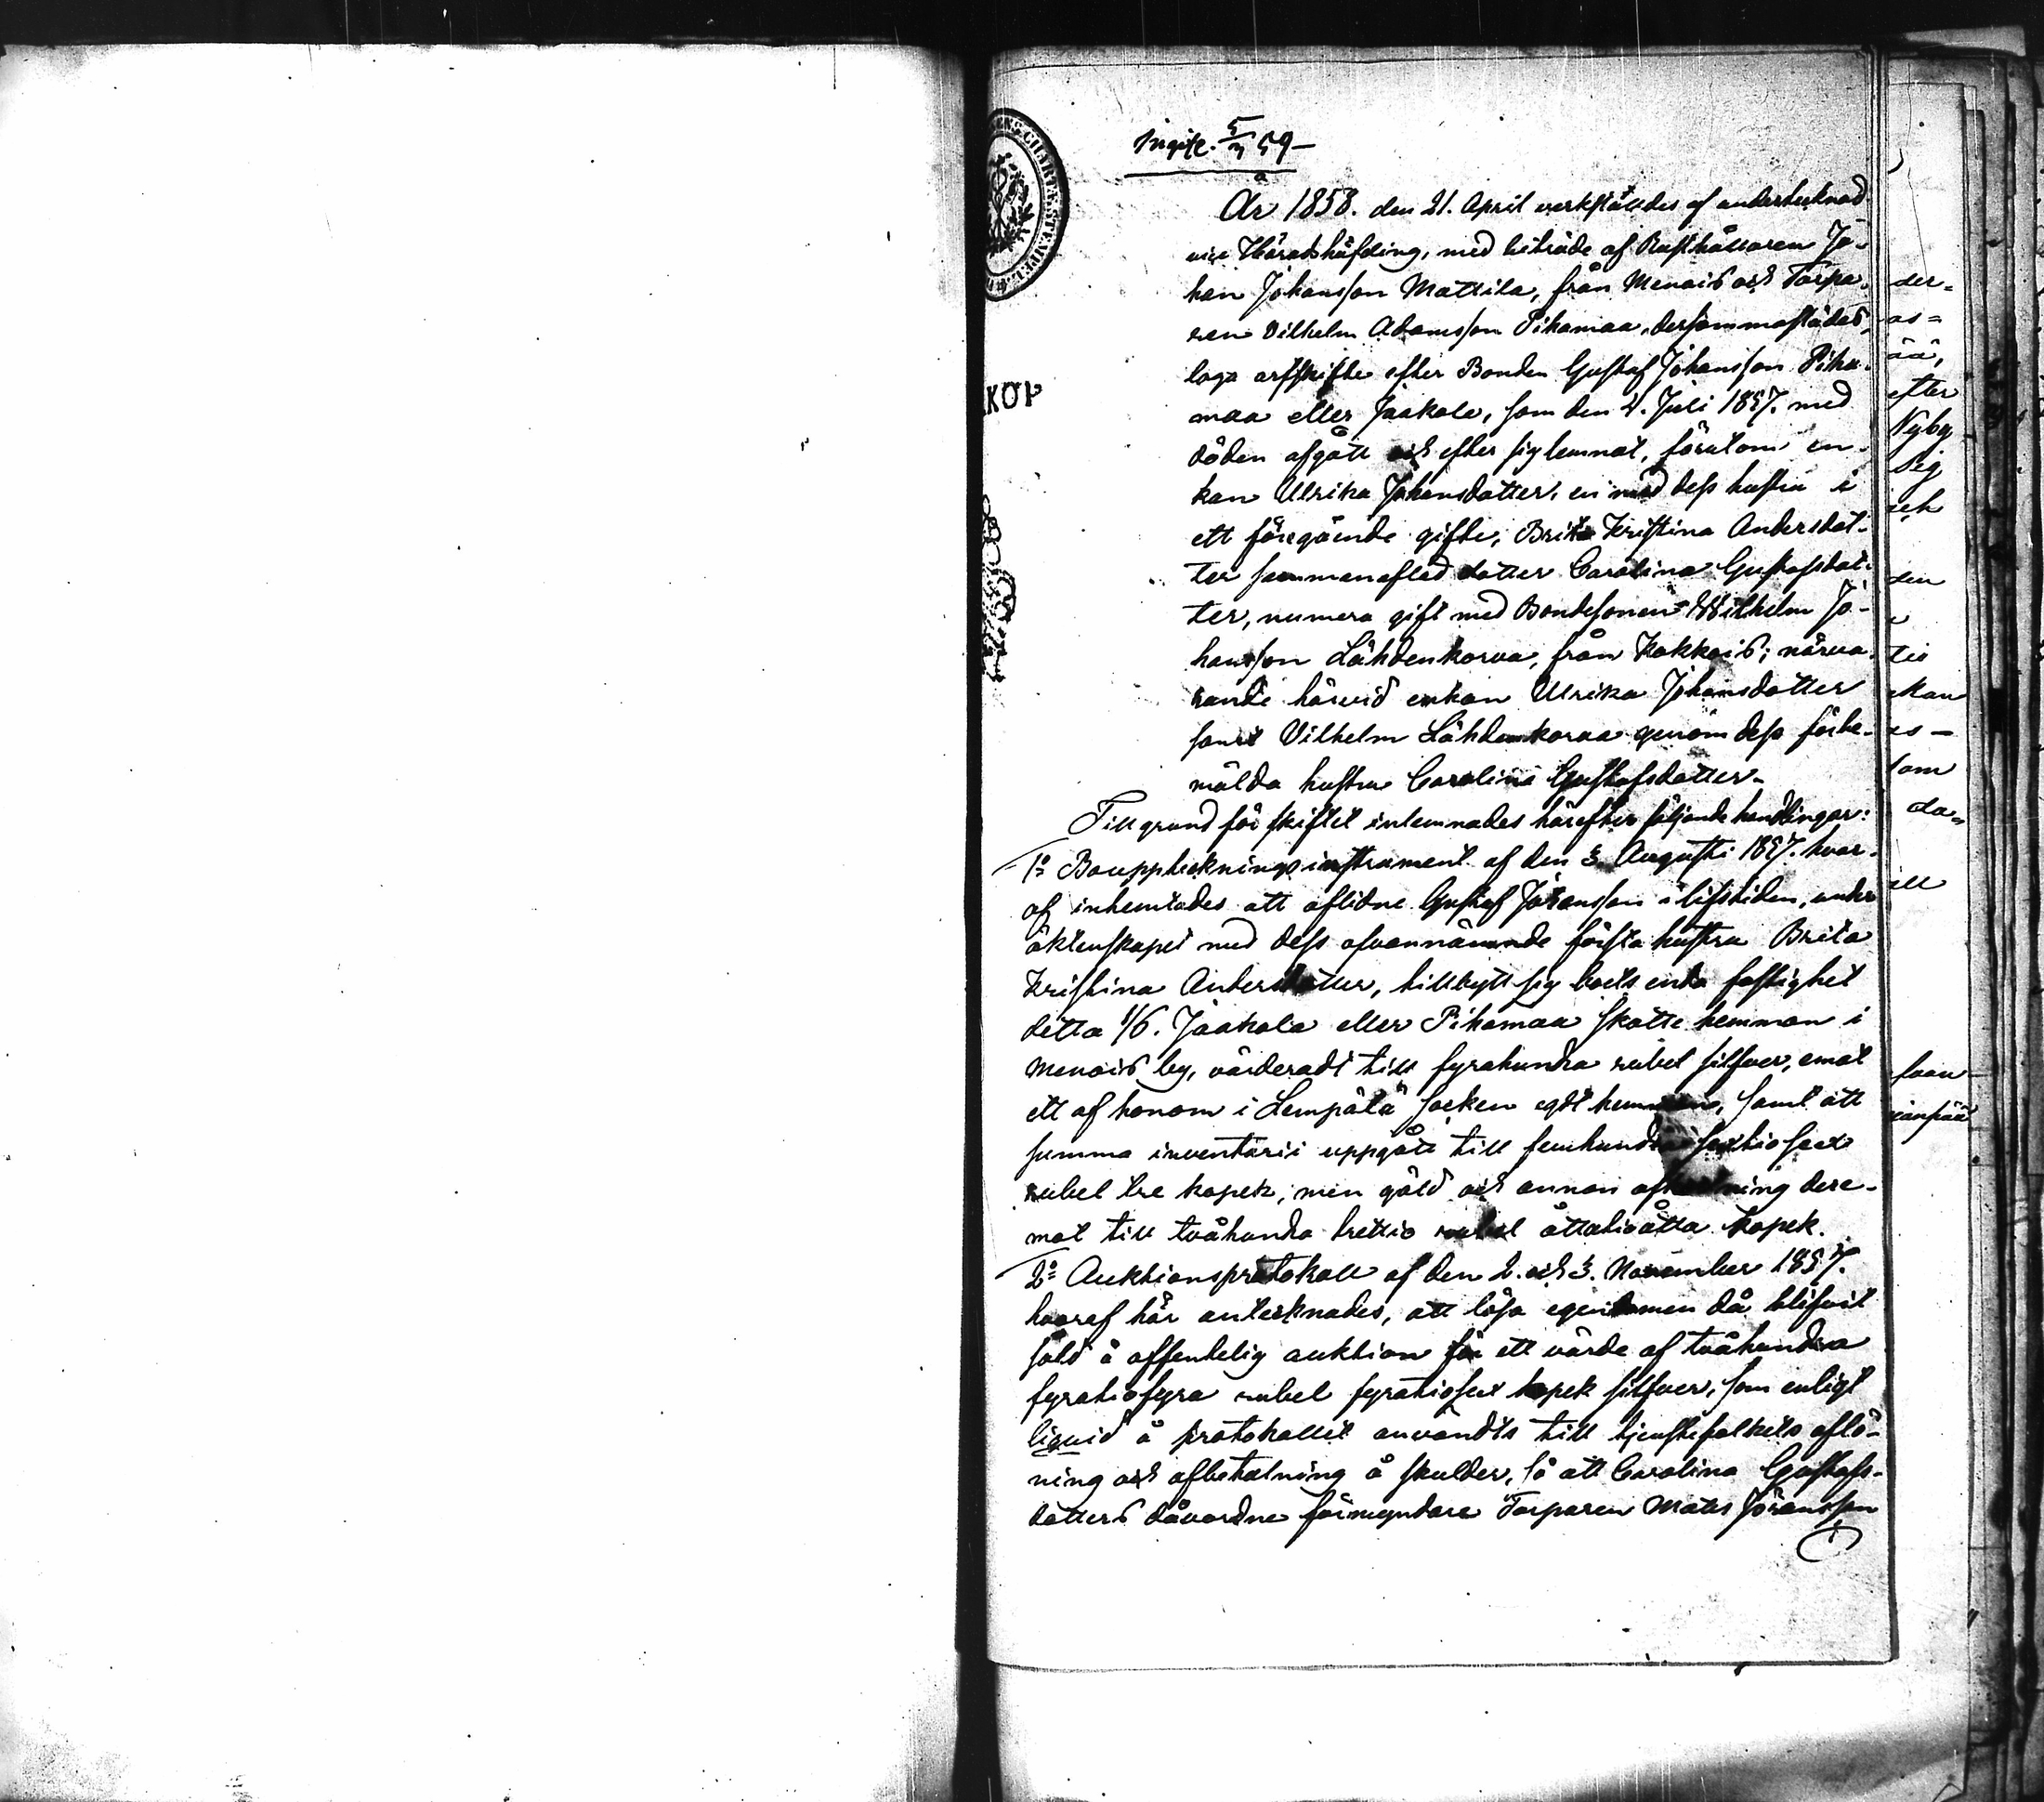 Ingife. 5/3 59 –
År 1858. den 21. April verkställdes af undertecknad
vice Häradshöfding, med biträde af Rusthållaren Jo-
han Johansson Mattila, från Menois och Torpa-
ren Vilhelm Adamsson Pihamaa, dersammastädes,
laga arfskifte efter Bonden Gustaf Johansson Piha-
maa eller Jaakola, som den 4. Juli 1857. med
döden afgått och efter sig lemnat, förutom en-
kan Ulrika Johansdotter, en med dess hustru i
ett föregående gifte, Brita Kristina Andersdot-
ter sammanaflad dotter Carolina Gustafsdot-
ter, numera gift med Bondesonen Wilhelm Jo-
hansson Lähdenkorva, från Kokkois; närva-
rande härvid enkan Ulrika Johansdotter
samt Vilhelm Lähdenkorva genom dess förbe-
mälda hustru Carolina Gustafsdotter.
Till grund för skiftet inlemnades härefter följande handlingar:
1o Bouppteckningsinstrument af den 3. Augusti 1857. hvar-
af inhemtades att aflidne Gustaf Johansson i lifstiden, under
äktenskapet med dess ofvannämnde första hustru Brita
Kristina Andersdotter, tillbytt sig boets enda fastighet
detta 1/6. Jaakola eller Pihamaa skatte hemman i
Menois by, värderadt till fyrahundra rubel silfver, emot
ett af honom i Lempälä socken egdt hemman, samt att
summa inventarii uppgått till femhundra sextiosex
rubel tre kopek, men gäld och annan afkortning dere-
mot till tvåhundra trettio rubel åttatioåtta kopek.
2o Auktionsprotokoll af den 2. och 3. November 1857.
hvaraf här antecknades, att lösa egendomen då blifvit
såld å offentelig auktion för ett värde af tvåhundra
fyratiofyra rubel fyratiosex kopek silfver, som enligt
liquid å protokollet användts till tjenstefolkets aflö-
ning och afbetalning å skulder, så att Carolina Gustafs-
dotters dåvordne förmyndare Torparen Mats Jöransson
KOP
der=
as=
ää,
efter
Nyby
sig
den
tis
kan
som
da=